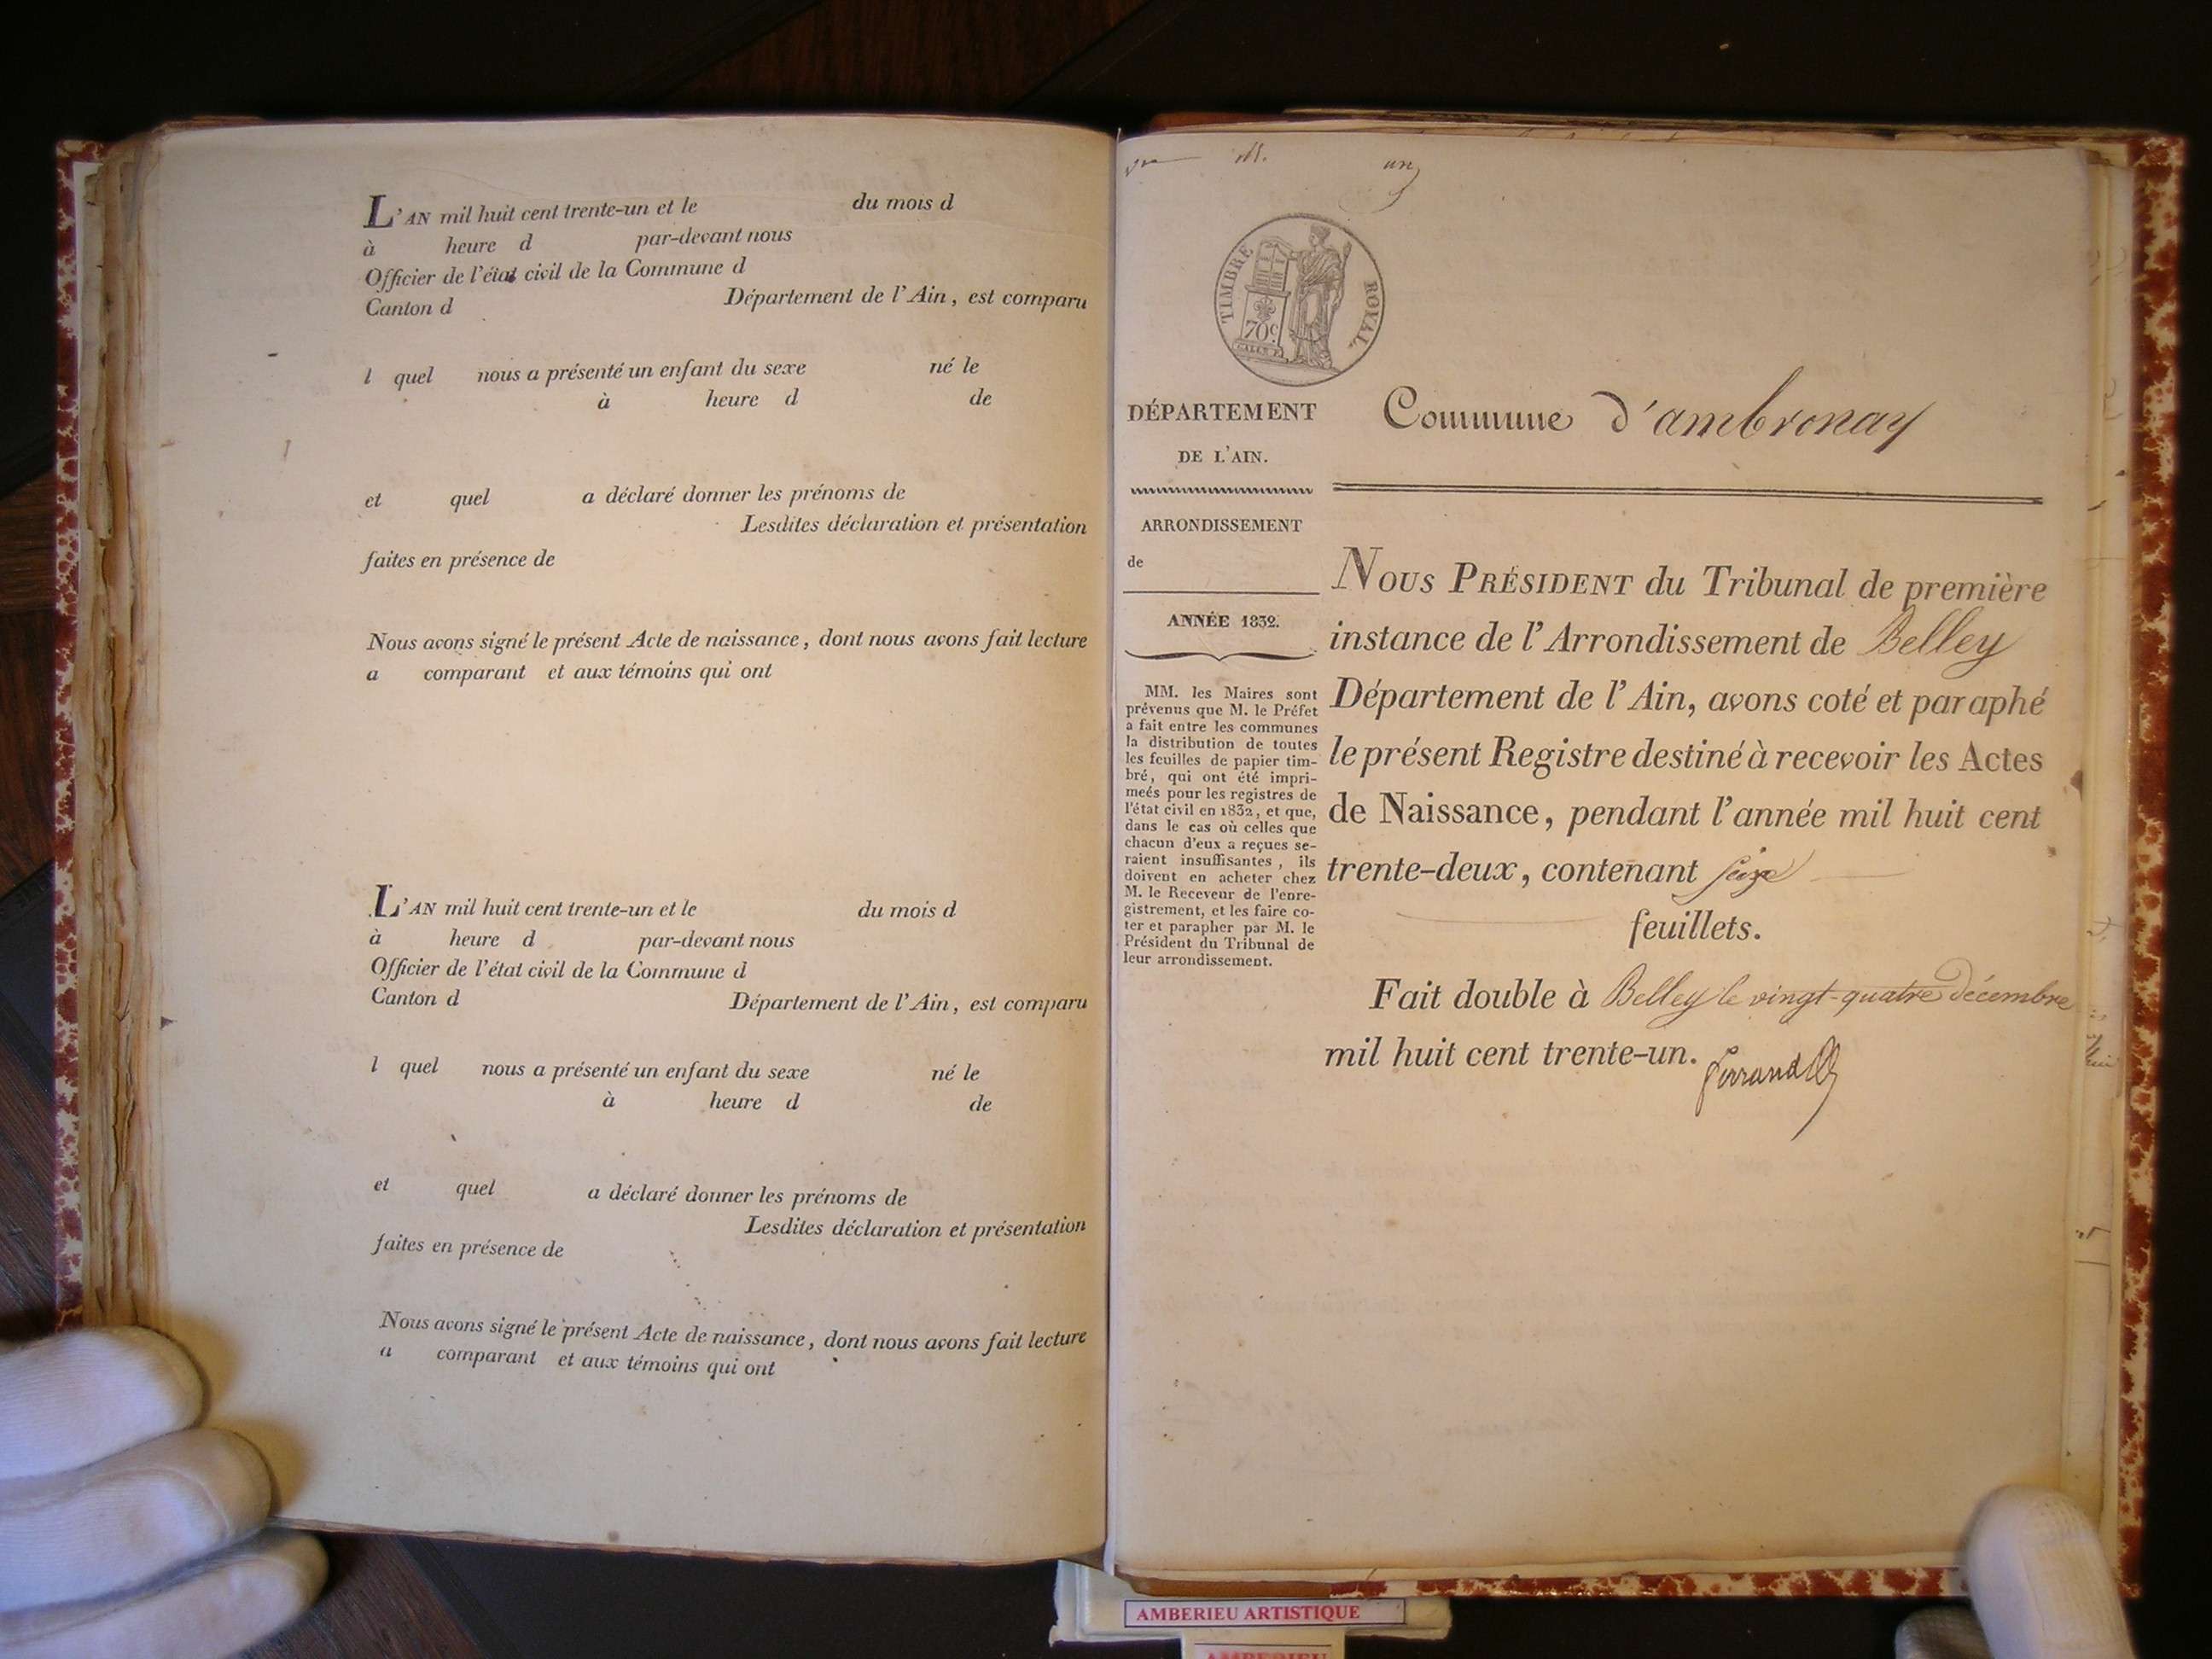 L'AN mil huit cent trente-un et le du mois d
à heure d par-devant nous
Officier de l'état civil de la Commune d
Canton d Département de l'Ain, est comparu
l quel nous a présenté un enfant du sexe né le
à heure d de
et quel a déclaré donner les prénoms de
Lesdites déclaration et présentation
faites en présence de
Nous avons signé le présent Acte de naissance, dont nous avons fait lecture
a comparant et aux témoins qui ont
L'AN mil huit cent trente-un et le du mois d
à heure d par-devant nous
Officier de l'état civil de la Commune d
Canton d Département de l'Ain, est comparu
l quel nous a présenté un enfant du sexe né le
à heure d de
et quel a déclaré donner les prénoms de
Lesdites déclaration et présentation
faites en présence de
Nous avons signé le présent Acte de naissance, dont nous avons fait lecture
a comparant et aux témoins qui ont
un
TIMBRE ROYAL
70c
DÉPARTEMENT
DE L'AIN.
ARRONDISSEMENT
de
ANNÉE 1832.
MM. les Maires sont
prévenus que M. le Préfet
a fait entre les communes
la distribution de toutes
les feuilles de papier tim-
bré, qui ont été impri-
meés pour les registres de
l'état civil en 1832, et que,
dans le cas où celles que
chacun d'eux a reçues se-
raient insuffisantes, ils
doivent en acheter chez
M. le Receveur de l'enre-
gistrement, et les faire co-
ter et parapher par M. le
Président du Tribunal de
leur arrondissement.
Commune d'ambronay
NOUS PRÉSIDENT du Tribunal de première
instance de l'Arrondissement de Belley
Département de l'Ain, avons coté et paraphé
le présent Registre destiné à recevoir les Actes
de Naissance, pendant l'année mil huit cent
trente-deux, contenant seize
feuillets.
Fait double à Belley le vingt-quatre décembre
mil huit cent trente-un.
AMBERIEU ARTISTIQUE
AMBERIEU